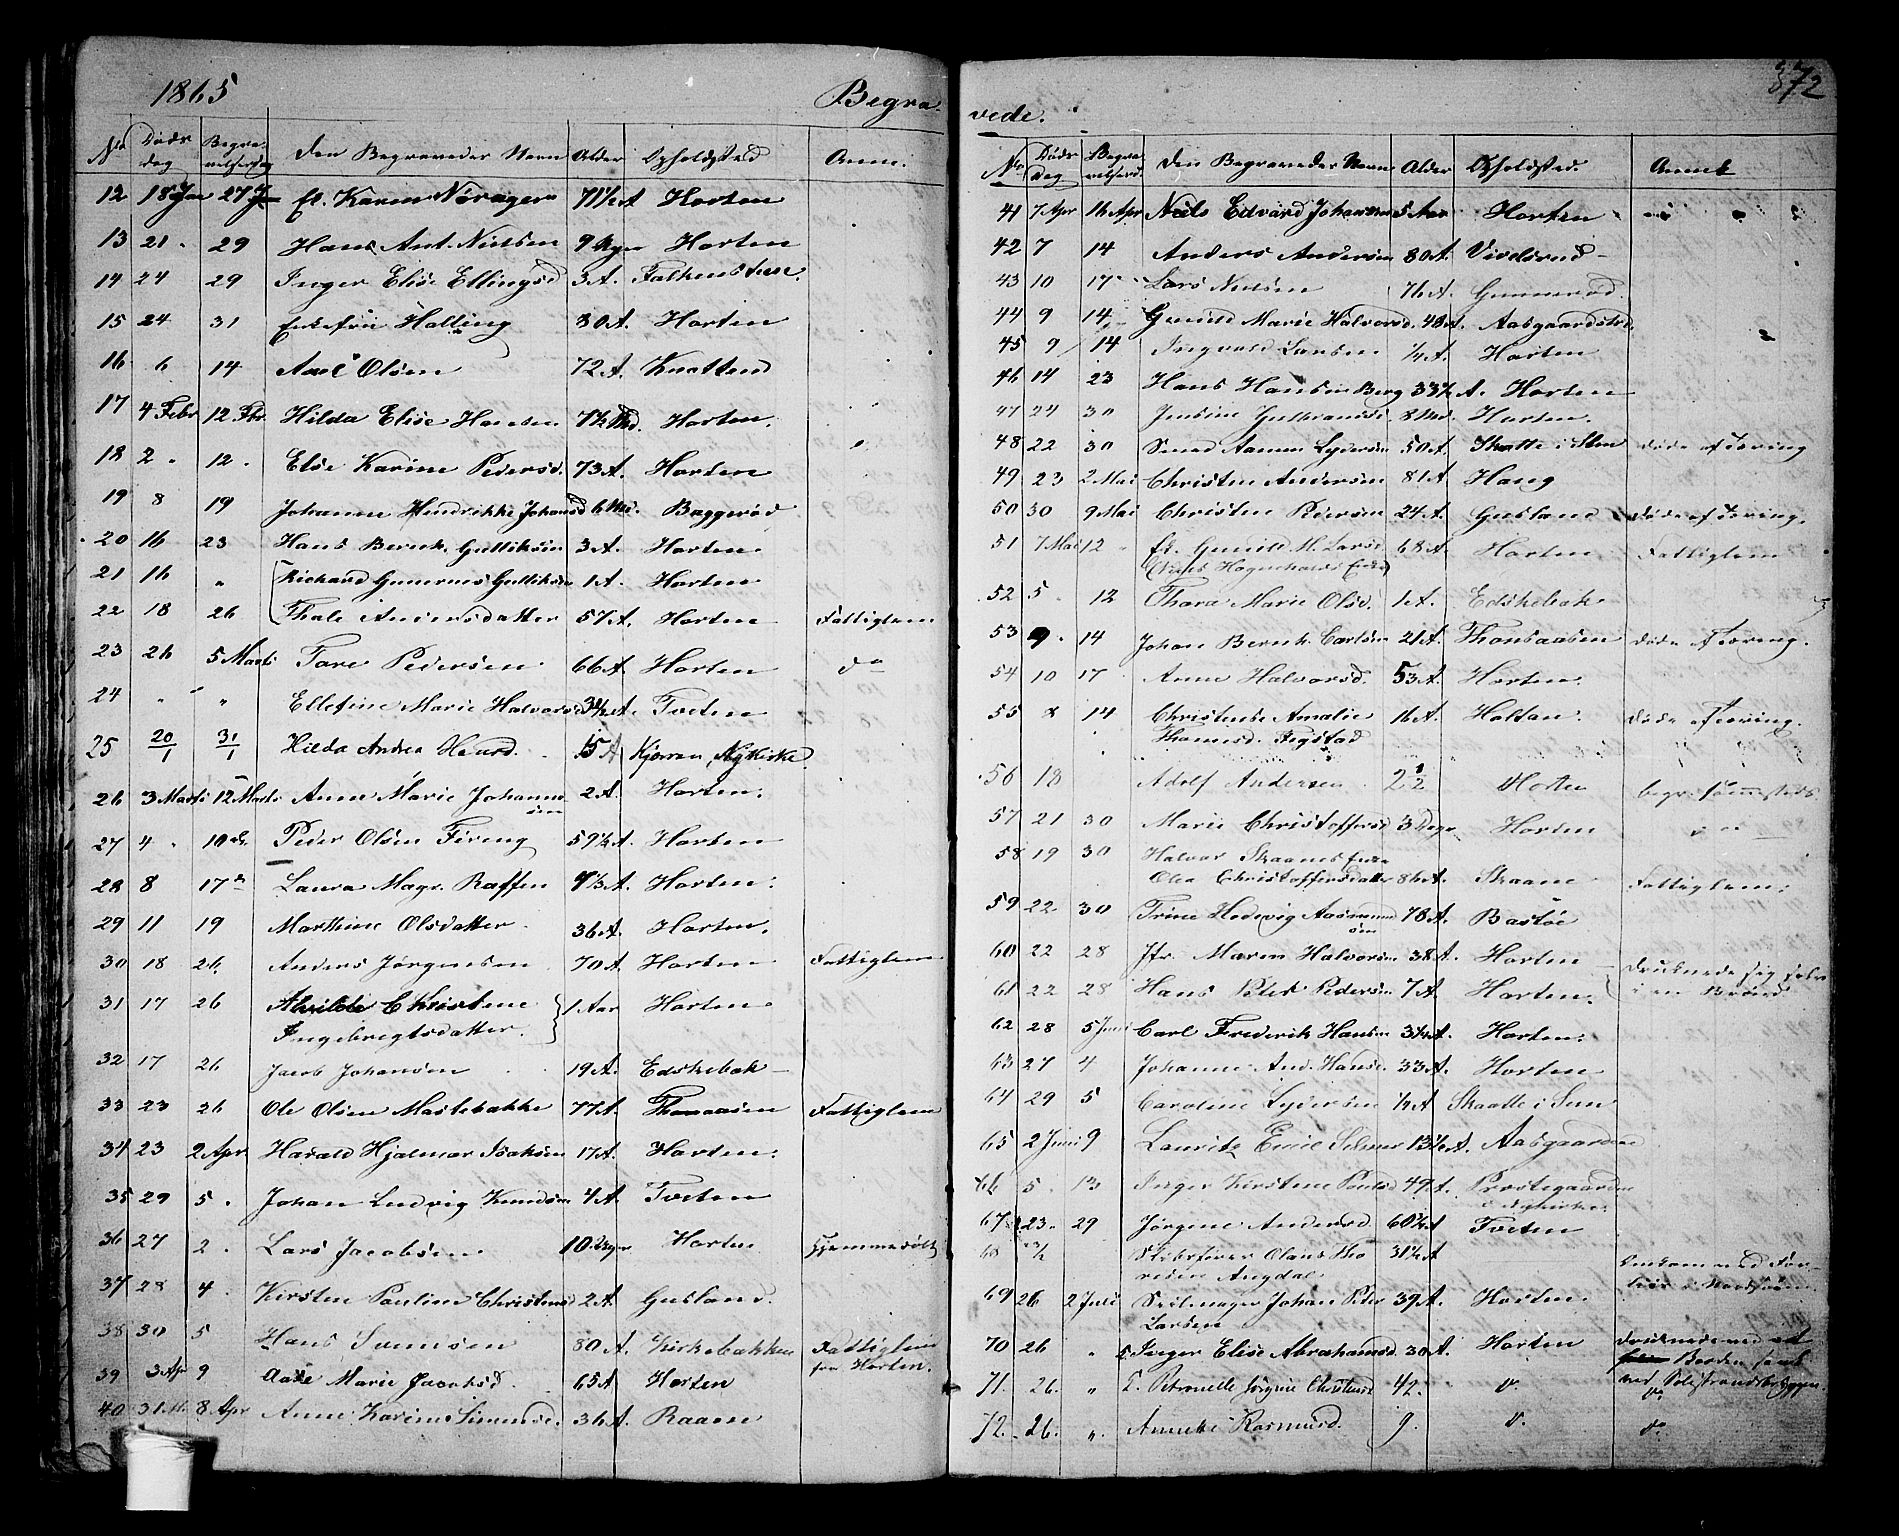 1865 Begra-
No Døds dag Begra velsesdag Den Begravedes Navn Alder Opholdssted Anm.
12 18 Jan 27 Jan E. Karen Nøragern 71½ A Horten
13 21 . 29 Hans Ant. Nielsen 9 Uger Horten
14 24 29 Inger Elise Ellingsd 3 A. Falkensteen
15 24 31 Enkefru Halling 80 A. Horten
16 6 14 Axel Olsen 72 A. Knatten
17 4 Febr 12 Fbr Hilda Elise Hansen 7½ Md. Horten.
18 2 . 12 . Else Karine Pedersd. 73 A. Horten
19 8 19 Johanne Hendrikke Johansd 6 Md. Baggerød
20 16 23 Hans Bernh. Gulliksen 3 A. Horten.
21 16 " Richard Gunerius Gulliksen 1 A. Horten
22 18 26 Thale Andersdatter 57 A. Horten Fattiglem
23 26 5 Marts Tore Pedersen 66 A. Horten do
24 " " Ellefine Marie Halvorsd 3½ A. Tveten
25 20/1 31/1 Hilda Andrea 15 A Kjørran, Nykirke
26 3 Marts 12 Marts Anne Marie Johanne-
sen 2 A. Horten.
27 4 . 10 de Peder Olsen Fireng 59½ A. Horten
28 8 17 Laura Magr. Raffen 9½ A. Horten.
29 11 19 Marthine Olsdatter 36 A. Horten.
30 18 26 Anders Jørgensen 70 A. Horten Fattiglem
31 17 26 Alvilde Christine 1 Aar Horten
Ingebregtsdatter.
32 17 26 Jacob Johansen 19 A. Edskebak
33 23 26 Ole Olsen Mastebakke 77 A. Thonsaasen Fattiglem
34 23 2 Apr Harald Hjalmar Isaksen 17 A. Horten.
35 29 5 . Johan Ludvig Knudsen 4 A. Tveten
36 27 2 . Lars Jacobsen 10 Uger Horten Hjemmedøbt
37 28 4 . Kirsten Pauline Christensd 2 A. Gusland.
38 30 5 Hans Svensen 80 A. Kirkebakken Fattiglem
fra Horten.
39 3 Apr 9 Aase Marie Jacobsd. 65 A Horten
40 31 M. 8 Apr Anne Karine Simensd. 36 A. Raaen
372
vede.
No Døds Dag Begra velsesd. Den Begravedes Navn Alder Opholdssted. Anmk
41 7 Apr 16 Apr Niels Edvard Johansen 5 Aar Horten
42 7 14 Anders Andersen 80 A.
43 10 17 Lars Nielsen 76 A. Gunnerød.
44 9 14 Gunild Marie Halvorsd. 48 A. Aasgaardstrd.
45 9 14 Ingvald Larsen ¼ A. Horten
46 14 23 Hans Hansen Berg 33½ A. Horten
47 24 30 Jensine Gulbrandsd. 8 Md. Horten.
48 22 30 Lydersen 50 A. Skatte i Slen Døde af Tæring
49 23 2 Mai Christen Andersen 81 A. Haug
50 30 9 Mai Christen Pedersen 24 A. Gusland Døde af Tæring.
51 7 Mai 12 E. Gunild M. Larsd. 68 A. Horten Fattiglem
52 5 12 Thora Marie Olsd. 1 A. Edskebak
53 9 . 14 Johan Bernh. Carlsen 21 A. Thonsaasen Døde af Tæring.
54 10 17 Anne Halvorsd. 53 A. Horten.
55 8 14 Christense Amalie 16 A. Holtan. Døde af Tæring.
Thomesd. Fegstad
56 18 Adolf Andersen 2½ Horten
57 21 30 Marie Christoffersd 3 Dage Horten
58 19 30 Halvor Skaanes Enke
Olea Christoffersdatter 86 A. Skaane Fattiglem.
59 22 30 Trine Hedevig Aasmund
sen 78 A. Bastøe
60 22 28 Jfr. Maren Halvorsen 38 A. Horten Druknede sig selv
61 22 28 Hans Peter Pedersen 7 A. Horten. i en Brønd
62 28 5 Juni Carl Frederik Hansen 3¼ A. Horten.
63 27 4 Johanne And. Hansd. 33 A. Horten
64 29 5 Caroline Lydersen ½ A Skaatte i Sem
65 2 Juni 9 Lauritz Emil 13½ A. Aasgaarden
66 5 . 13 Inger Kirstine Paulsd 49 A. Prestegaarden
i Nykirke.
67 23 . 29 Jørgine Andersd 60½ A Tveten
68 Skibsfører Olaus Tho 31½ A Omkom ved For-
resen Angdal liis i Nordsøen
69 26 2 Juli Seilmager Johan Peder 39 A. Horten.
Larsen
70 26 " Inger Elise Abrahamsd 30 A. Horten Druknede ved at
71 . 26 . " Petronelle Jørgine Christensd 42 . do ved
do
72 . 26 . " Annette Rasmusd. 9 . do do